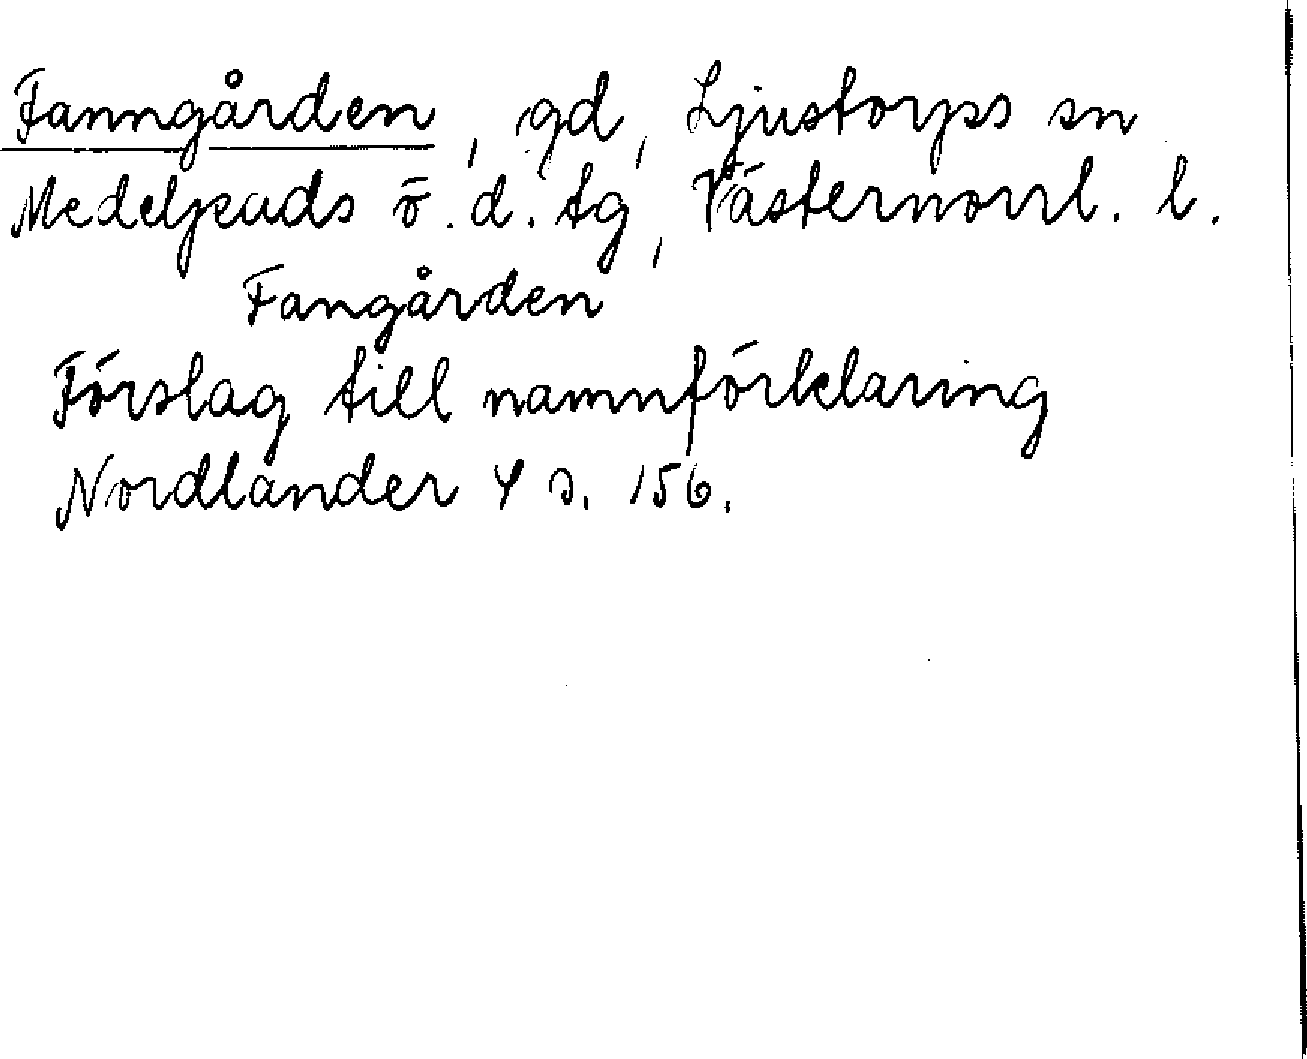 Fanngården, gd, Ljustorps sn
Medelpads ö. d. tg, Västernorrl. l.
Fangården
Förslag till namnförklaring
Nordlander 4 s. 156.